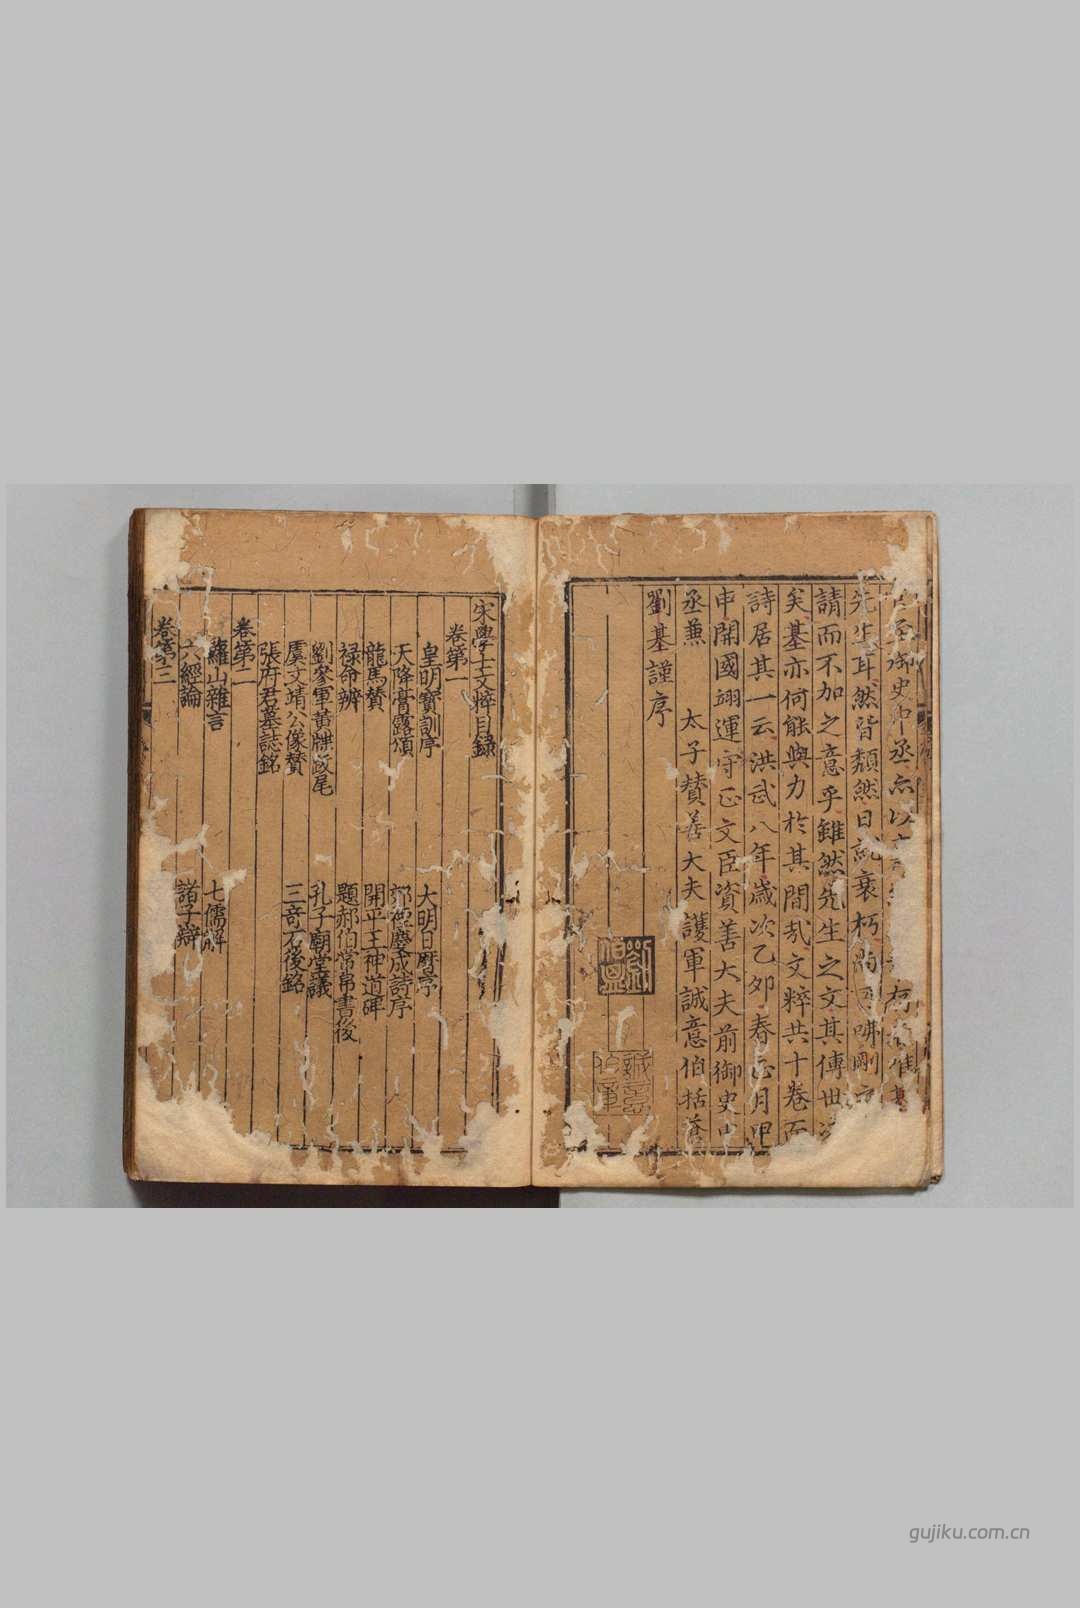 御史中丞亦以
先生耳然皆頹然日就衰朽尚
請而不加之意乎雖然先生之文其傳世決
矣基亦何能與力於其間哉文粹共十卷而
詩居其一云洪武八年歲次乙卯春正月甲
申開國翊運守正文臣資善大夫前御史中
丞兼 太子贊善大夫護軍誠意伯括蒼
劉基謹序
劉伯溫
宋學士文粹目錄
卷第一
皇明寶訓序 大明日曆序
天降膏露頌 郊禋慶成詩序
龍馬贊 開平王神道碑
祿命辨 題郝伯常帛書後
劉參軍黃牒政尾 孔子廟堂議
虞文靖公像贊 三奇石後銘
張府君墓誌銘
卷第二
蘿山雜言 七儒解
六經論 諸子辯
卷第三
gujiku.com.cn